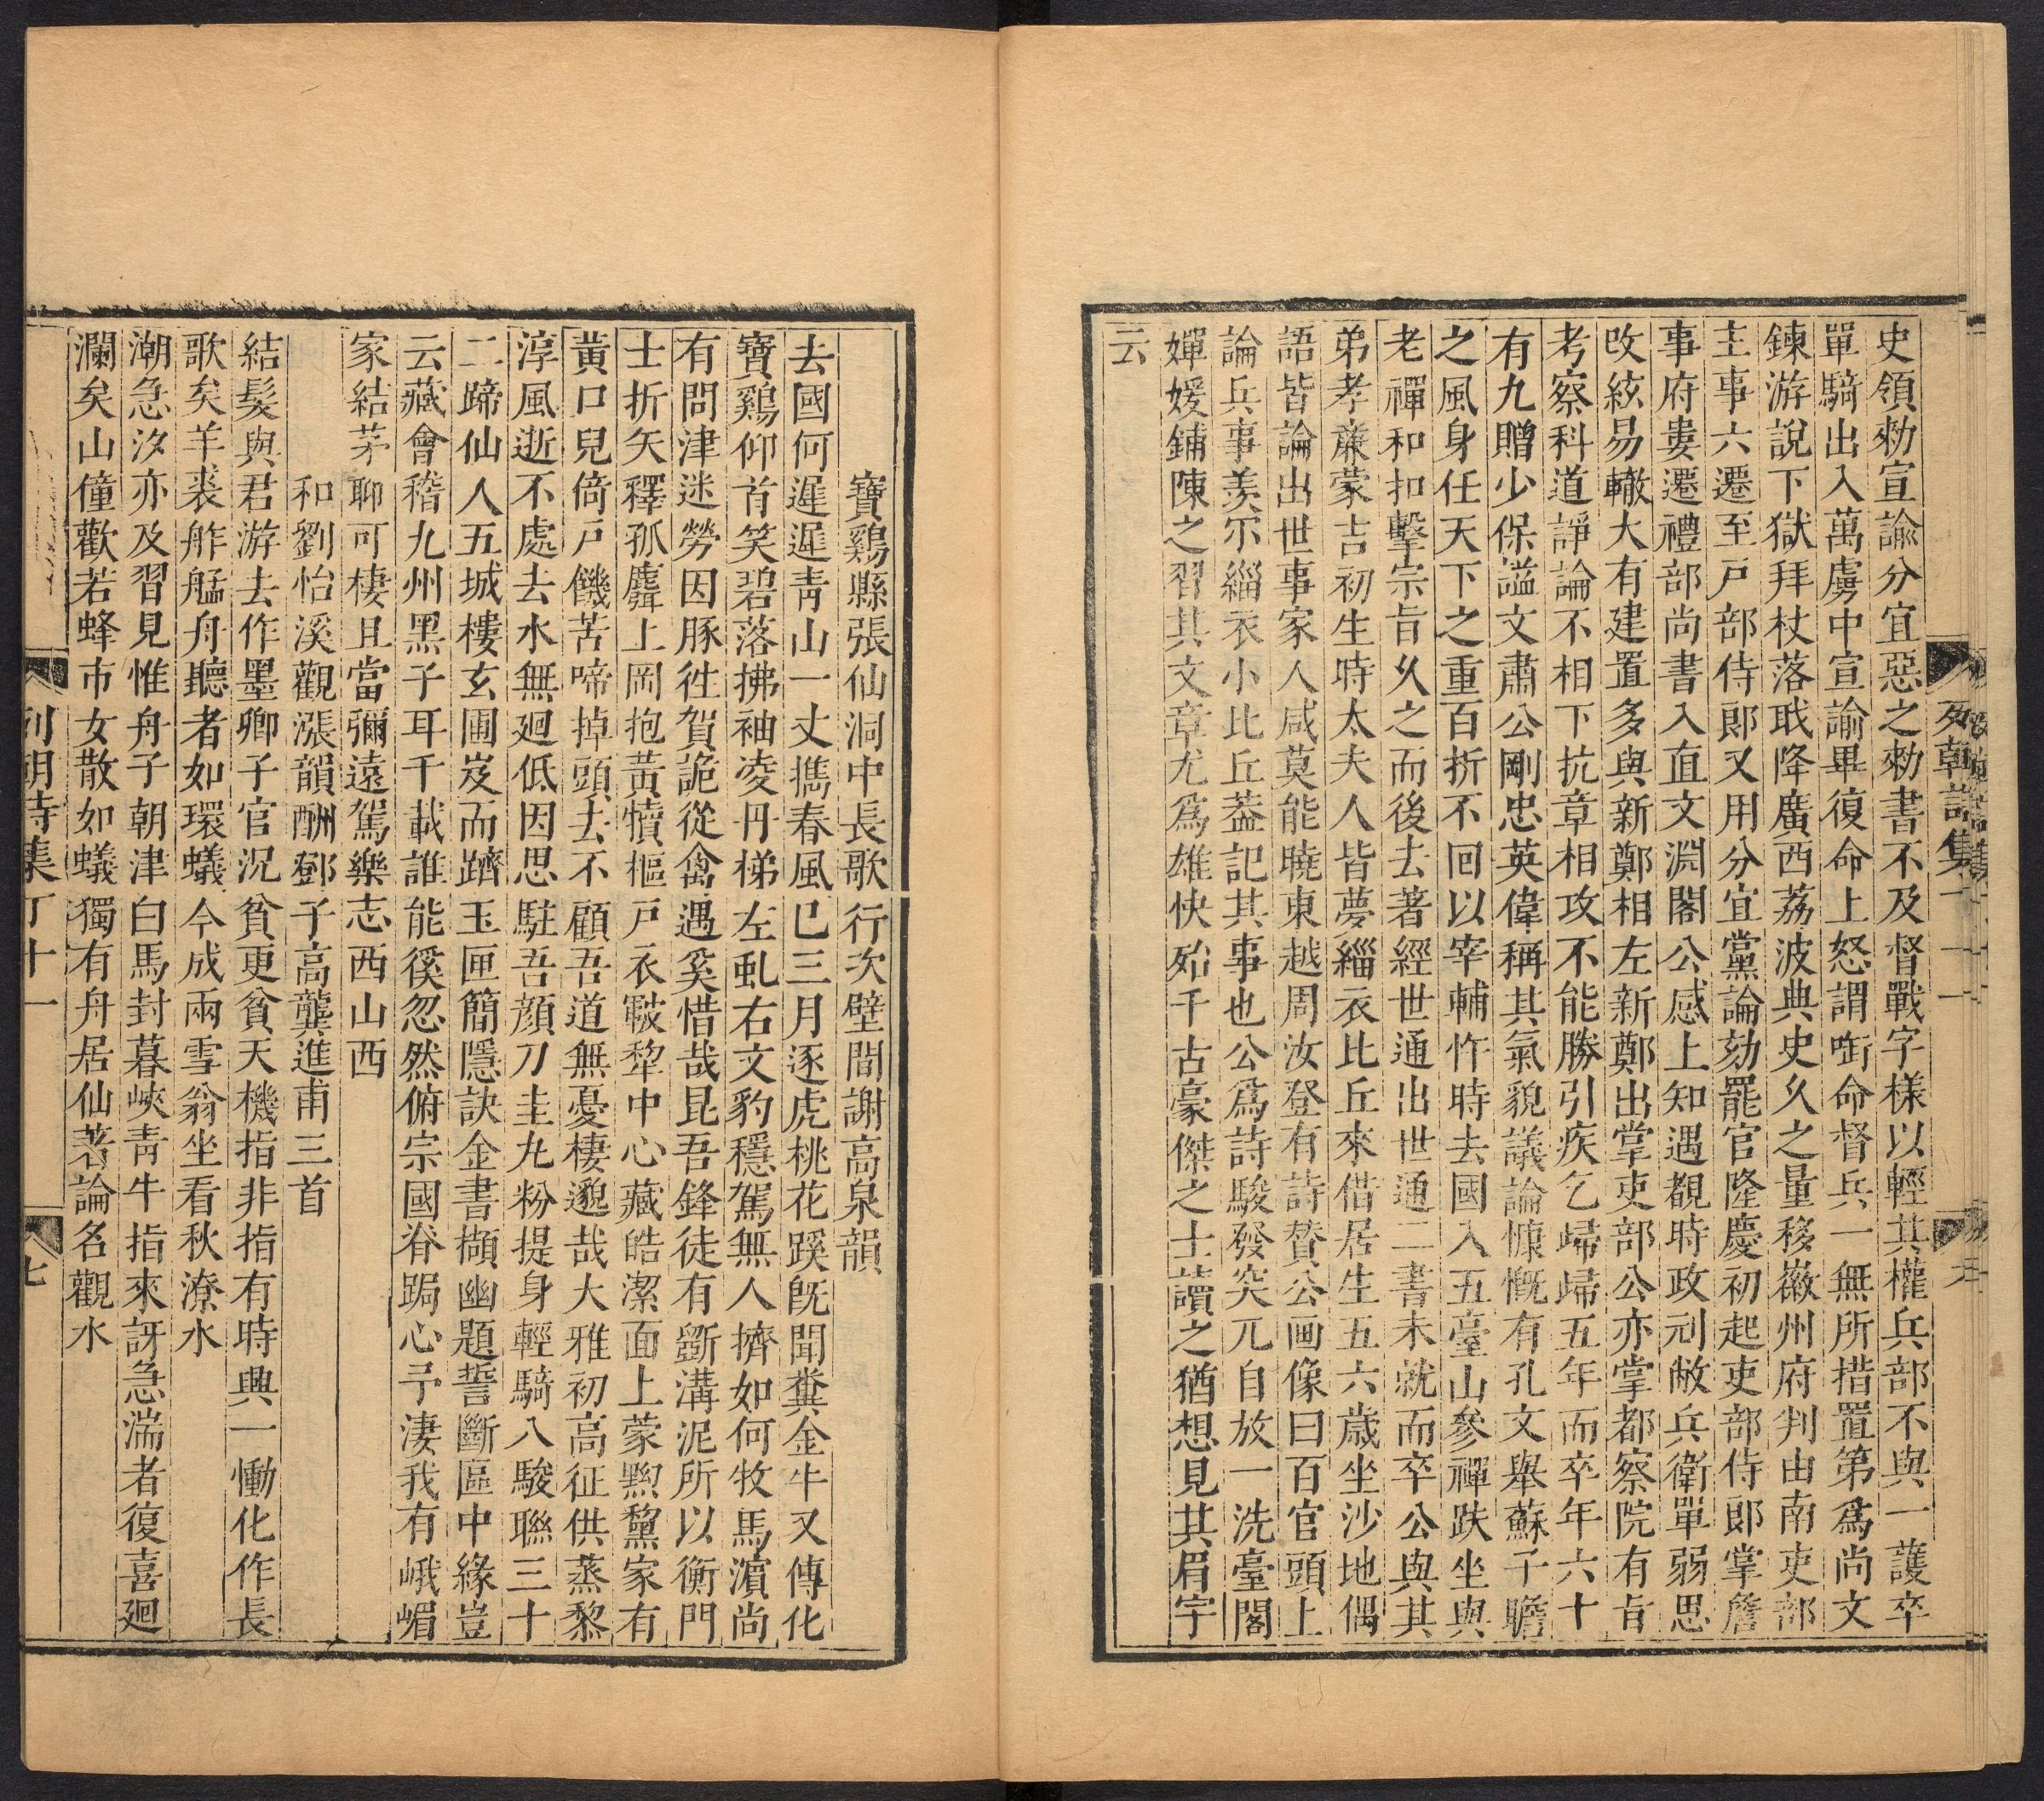 史領勑宣諭分宜惡之勑書不及督戰字樣以輕其權兵部不與一護卒
單騎出入萬虜中宣諭畢復命上怒謂啣命督兵一無所措置第爲尚文
鍊游說下獄拜杖落戝降廣西荔波典史久之量移徽州府判由南吏部
主事六遷至戸部侍郎又用分宜黨論劾罷官隆慶初起吏部侍郎掌詹
事府婁遷禮部尚書入直文淵閣公感上知遇覩時政刓敝兵衛單弱思
改絃易轍大有建置多與新鄭相左新鄭出掌吏部公亦掌都察院有旨
考察科道諍論不相下抗章相攻不能勝引疾乞歸歸五年而卒年六十
有九贈少保謚文肅公剛忠英偉稱其氣貌議論慷慨有孔文舉蘇子瞻
之風身任天下之重百折不回以宰輔忤時去國入五臺山參禪趺坐與
老禪和扣擊宗旨久之而後去著經世通出世通二書未就而卒公與其
弟孝亷蒙吉初生時太夫人皆夢緇衣比丘來借居生五六歲坐沙地偶
語皆論出世事家人咸莫能曉東越周汝登有詩贊公画像曰百官頭上
論兵事羡尓緇衣小比丘葢記其事也公爲詩駿發突兀自放一洗臺閣
嬋媛鋪陳之習其文章尤爲雄快殆千古豪傑之士讀之猶想見其眉宇
云
列朝詩集
寶鷄縣張仙洞中長歌行次壁間謝高泉韻
去國何遲遲靑山一丈擕春風已三月逐虎桃花蹊旣聞糞金牛又傳化
寶鷄仰首笑碧落拂袖凌丹梯左虬右文豹穩駕無人擠如何牧馬濵尚
有問津迷勞因豚徃賀詭從禽遇奚惜哉昆吾鋒徒有斵溝泥所以衡門
士折矢釋孤麛上岡抱黃犢樞戸衣皸犂中心藏皓潔面上蒙黰黧家有
黃口兒倚戸饑苦啼掉頭去不顧吾道無憂棲邈哉大雅初高征供蒸黎
淳風逝不處去水無廻低因思駐吾顏刀圭九粉提身輕騎八駿聯三十
二蹄仙人五城樓玄圃岌而躋玉匣簡隱訣金書擷幽題誓斷區中緣豈
云藏會稽九州黑子耳千載誰能徯忽然俯宗國脊跼心予淒我有峨嵋
家結茅聊可棲且當彌遠駕樂志西山西
和劉怡溪觀漲韻酬鄧子高龔進甫三首
結髮與君游去作墨卿子官況貧更貧天機指非指有時興一慟化作長
歌矣羊裘舴艋舟聽者如環蟻今成兩雪翁坐看秋潦水
潮急汐亦及習見惟舟子朝津白馬封暮峽靑牛指來訝急湍者復喜廻
瀾矣山僮歡若蜂市女散如蟻獨有舟居仙著論名觀水
列朝詩集丁十一
七